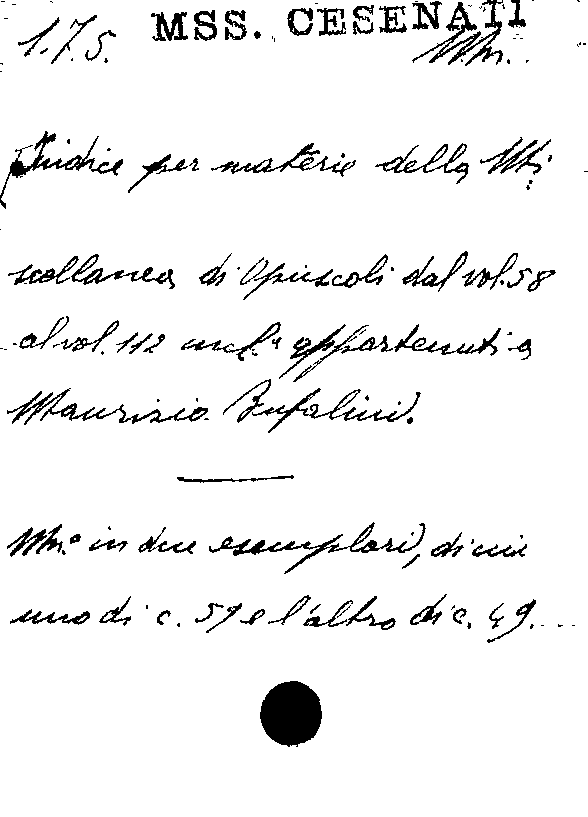 MSS. CESENATI
1.7.5. Mn.
Indice per materie della Mi
scellanea di Opuscoli dal vol. 58
al vol. 112 incl. appartenuti a
Maurizio Bufalini.
Mn.° in due esemplari, di cui
uno di c. 59 e l'altro di c. 49.